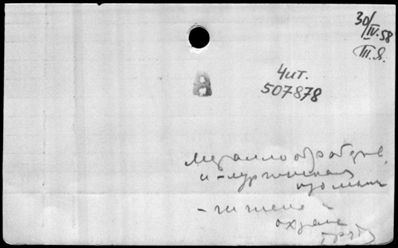 30/IV.58
III.Я.
Чит.
507878
Металлообработ.
и -лургическая
- гигиена и
охрана
труда